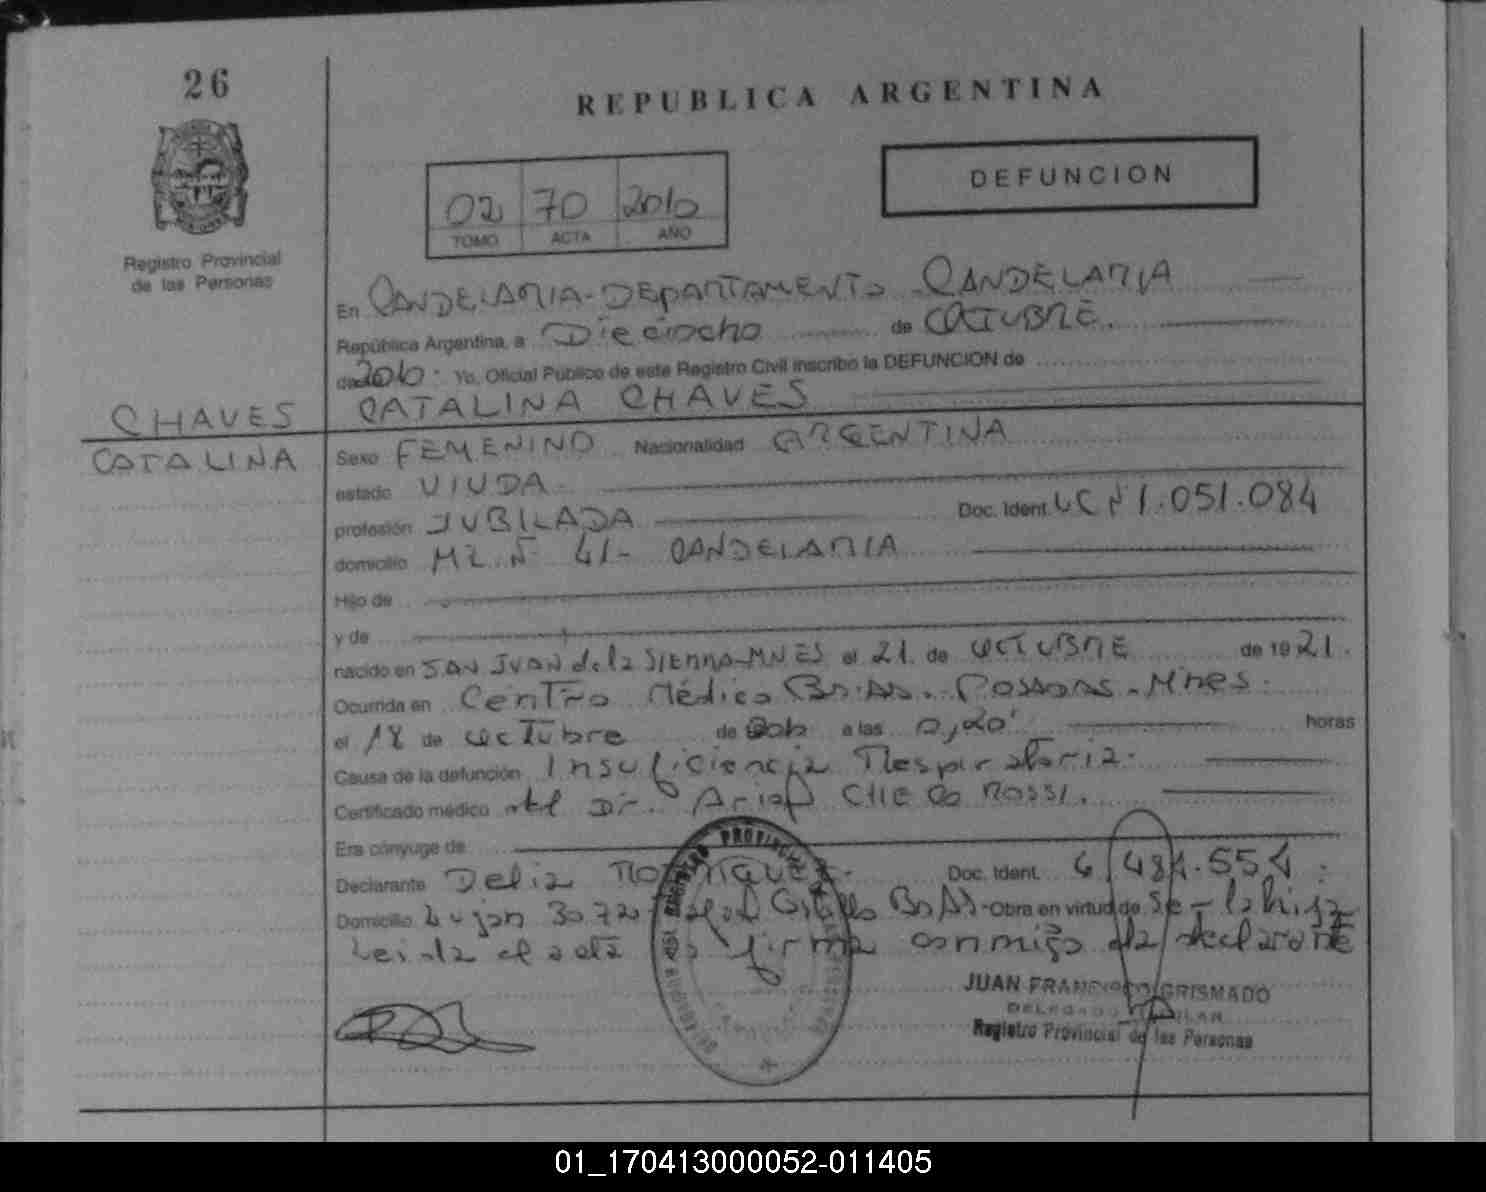 26
REPUBLICA ARGENTINA
DEFUNCION
02 70 2010
TOMO ACTA AÑO
Registro Provincial
de las Personas
En CANDELARIA - DEPARTAMENTO CANDELARIA
República Argentina, a Dieciocho de OCTUBRE.
de 2010. Yo, Oficial Público de este Registro Civil inscribo la DEFUNCION de
CHAVES CATALINA CHAVES
CATALINA
Sexo FEMENINO Nacionalidad ARGENTINA
estado VIUDA.
profesión JUBILADA Doc. Ident. LC Nº 1.051.084
domicilio MZ. Nº 41 - CANDELARIA
Hijo de
y de
nacido en SAN JUAN de la SIERRA-MNES el 21 de OCTUBRE de 1921.
Ocurrida en Centro Médico Bs.As. Posadas - Mnes.
el 18 de octubre de 2010 a las 0,20' horas
Causa de la defunción Insuficiencia Respiratoria.
Certificado médico del Dr. ROSSI.
Era cónyuge de
Declarante Delia Doc. Ident. 6.481.554
Domicilio Lujan 3072 Castillo Bs As - Obra en virtud de Se - la hija
Leida el acta la firma conmigo la declarante
JUAN FRANCISCO GRISMADO
DELEGADO TITULAR
Registro Provincial de las Personas
01_170413000052-011405